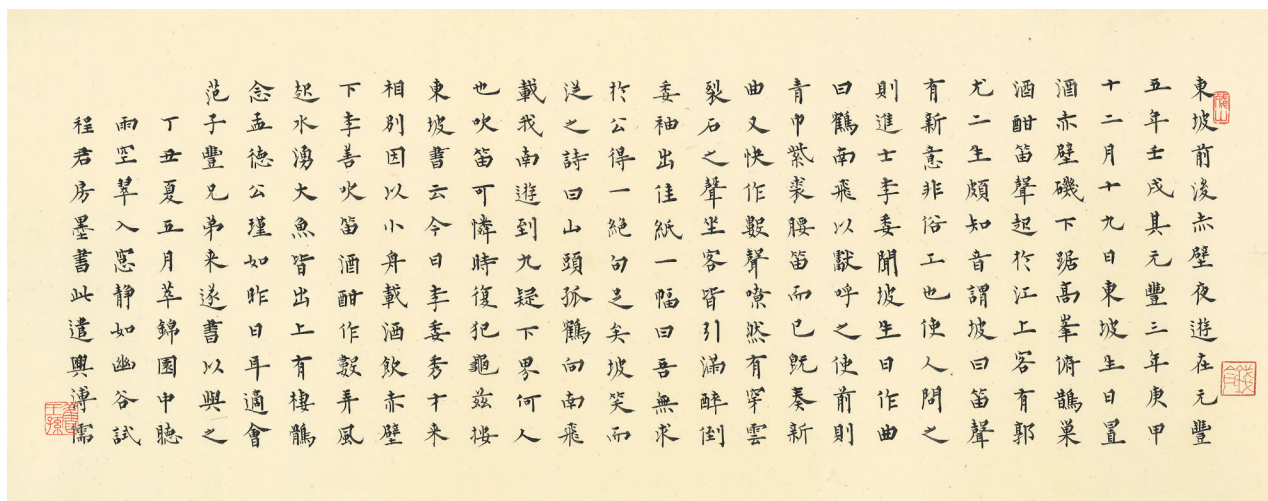 東坡前後赤壁夜遊在元豐
五年壬戌其元豐三年庚甲
十二月十九日東坡生日置
酒赤壁磯下踞高峯俯鵲巢
酒酣笛聲起於江上客有郭
尤二生頗知音謂坡曰笛聲
有新意非俗工也使人問之
則進士李委聞坡生日作曲
曰鶴南飛以獻呼之使前則
青巾紫裘腰笛而已既奏新
曲又快作數聲嘹然有穿雲
裂石之聲坐客皆引滿醉倒
委袖出佳紙一幅曰吾無求
於公得一絕句足矣坡笑而
從之詩曰山頭孤鶴向南飛
載我南遊到九疑下界何人
也吹笛可憐時復犯龜茲按
東坡書云今日李委秀才來
相別因以小舟載酒飲赤壁
下李善吹笛酒酣作數弄風
起水湧大魚皆出上有棲鶻
念孟德公瑾如昨日耳適會
范子豐兄弟來遂書以與之
丁丑夏五月萃錦園中聽
雨空翠入窻靜如幽谷試
程君房墨書此遣興溥儒
舊王孫